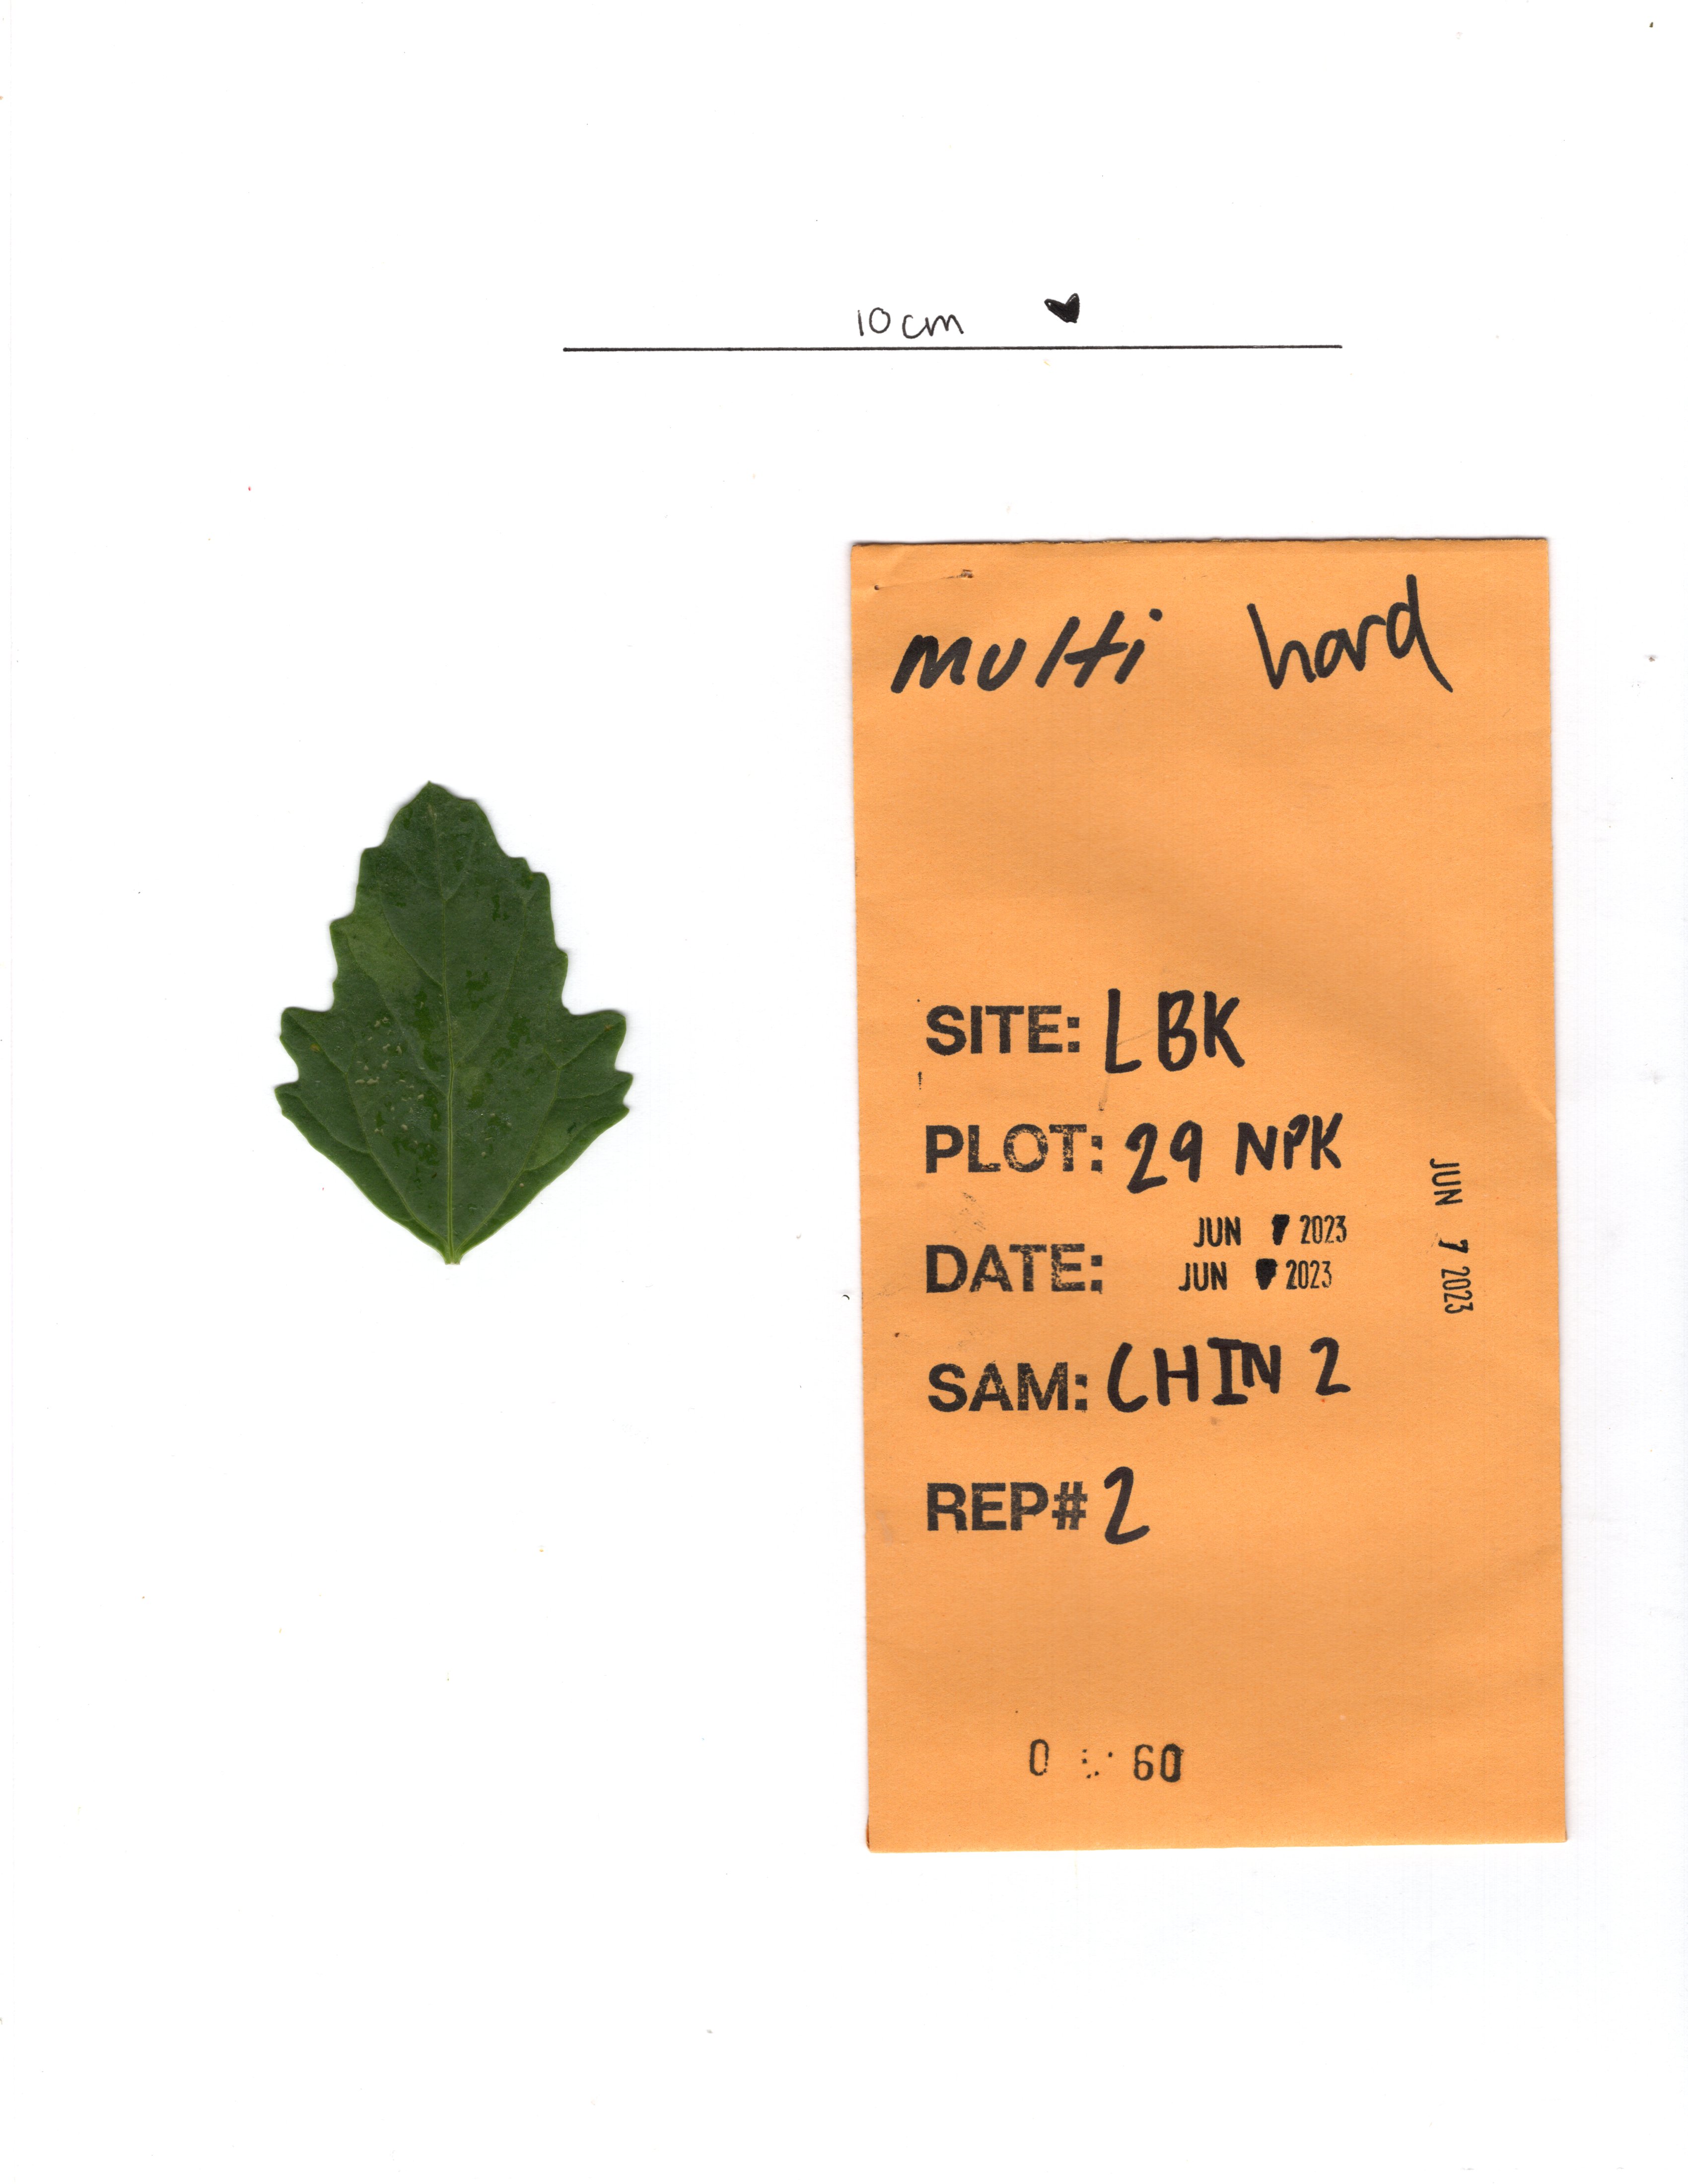 10cm
multi hard
SITE: LBK
PLOT: 29 NPK
JUN 7 2023
DATE: JUN 2023
JUN 7 2023
SAM: CHIN 2
REP# 2
0 60